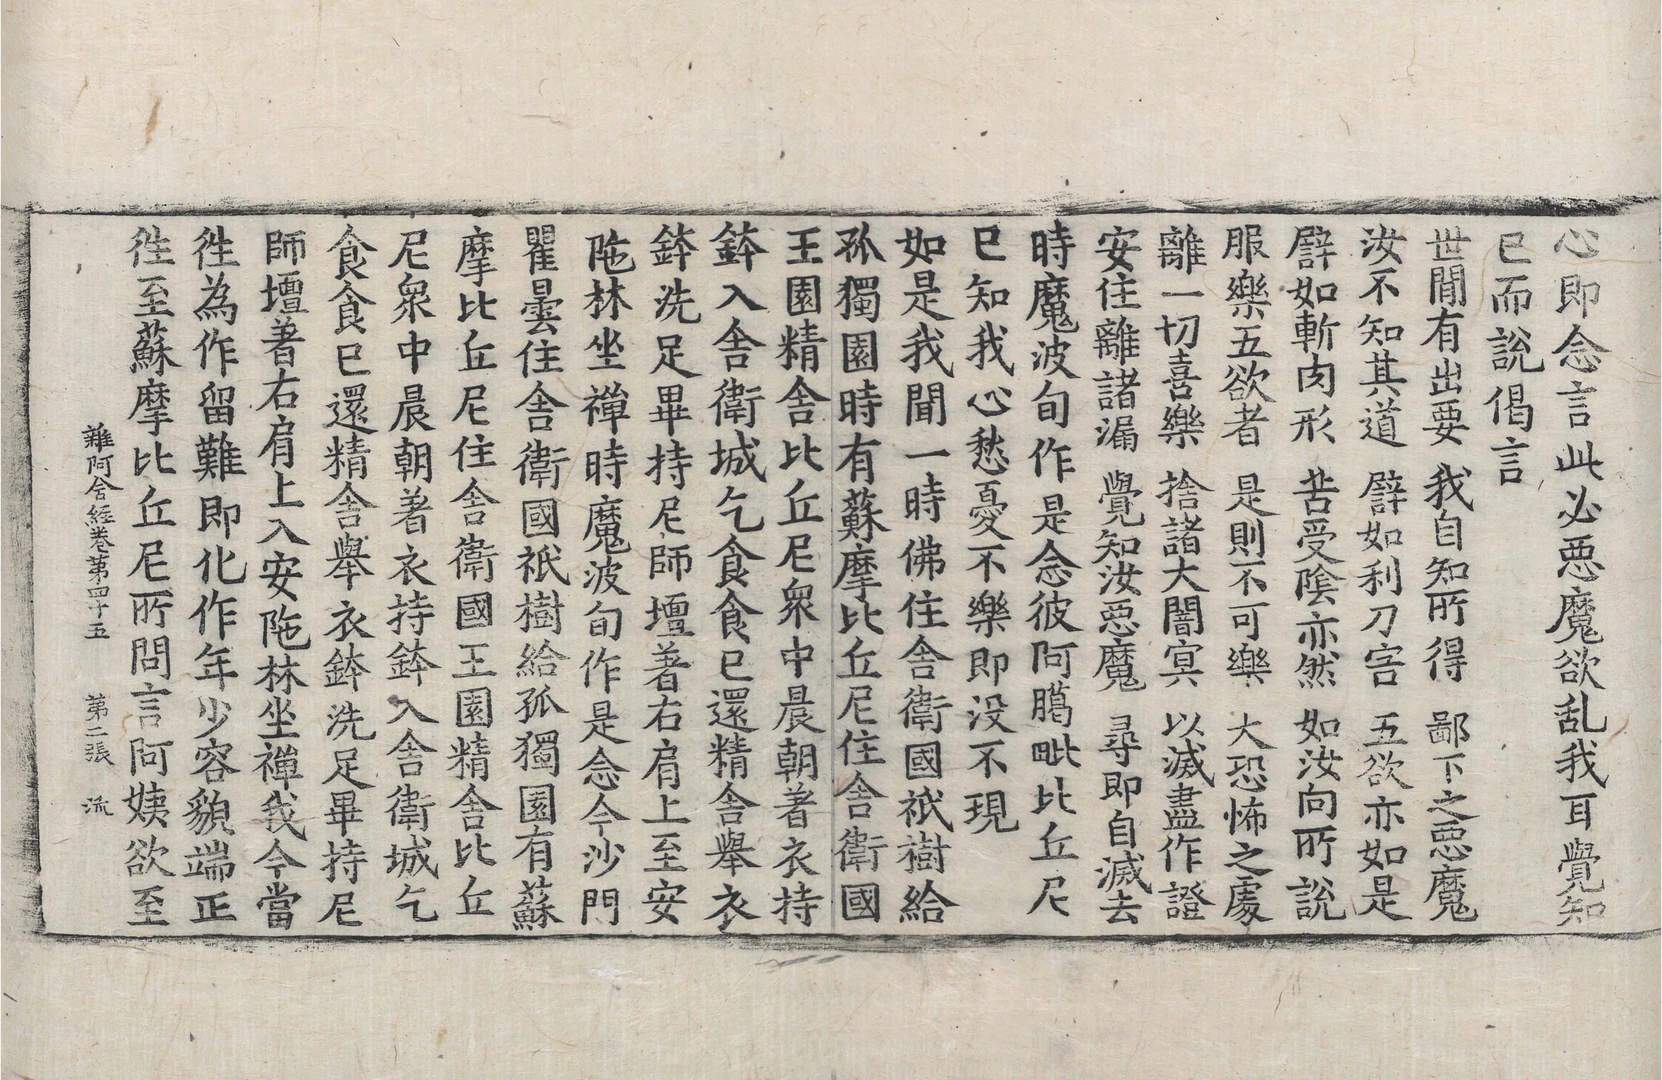 心即念言此必惡魔欲乱我耳覺知
已而說偈言
世閒有出要 我自知所得 鄙下之惡魔
汝不知其道 譬如利刀害 五欲亦如是
譬如斬肉形 苦受陰亦然 如汝向所說
服樂五欲者 是則不可樂 大恐怖之處
離一切喜樂 捨諸大闇冥 以滅盡作證
安住離諸漏 覺知汝惡魔 尋即自滅去
時魔波旬作是念彼阿臈毗比丘尼
已知我心愁憂不樂即没不現
如是我聞一時佛住舍衛國祇樹給
孤獨園時有蘇摩比丘尼住舍衛國
王園精舍比丘尼衆中晨朝著衣持
鉢入舍衛城乞食食已還精舍擧衣
鉢洗足畢持尼師壇著右肩上至安
陁林坐禪時魔波旬作是念今沙門
瞿曇住舍衛國祇樹給孤獨園有蘇
摩比丘尼住舍衛國王園精舍比丘
尼衆中晨朝著衣持鉢入舍衛城乞
食食已還精舍擧衣鉢洗足畢持尼
師壇著右肩上入安陁林坐禪我今當
徃為作留難即化作年少容貌端正
徃至蘇摩比丘尼所問言阿姨欲至
雜阿含經卷第四十五 第二張 流